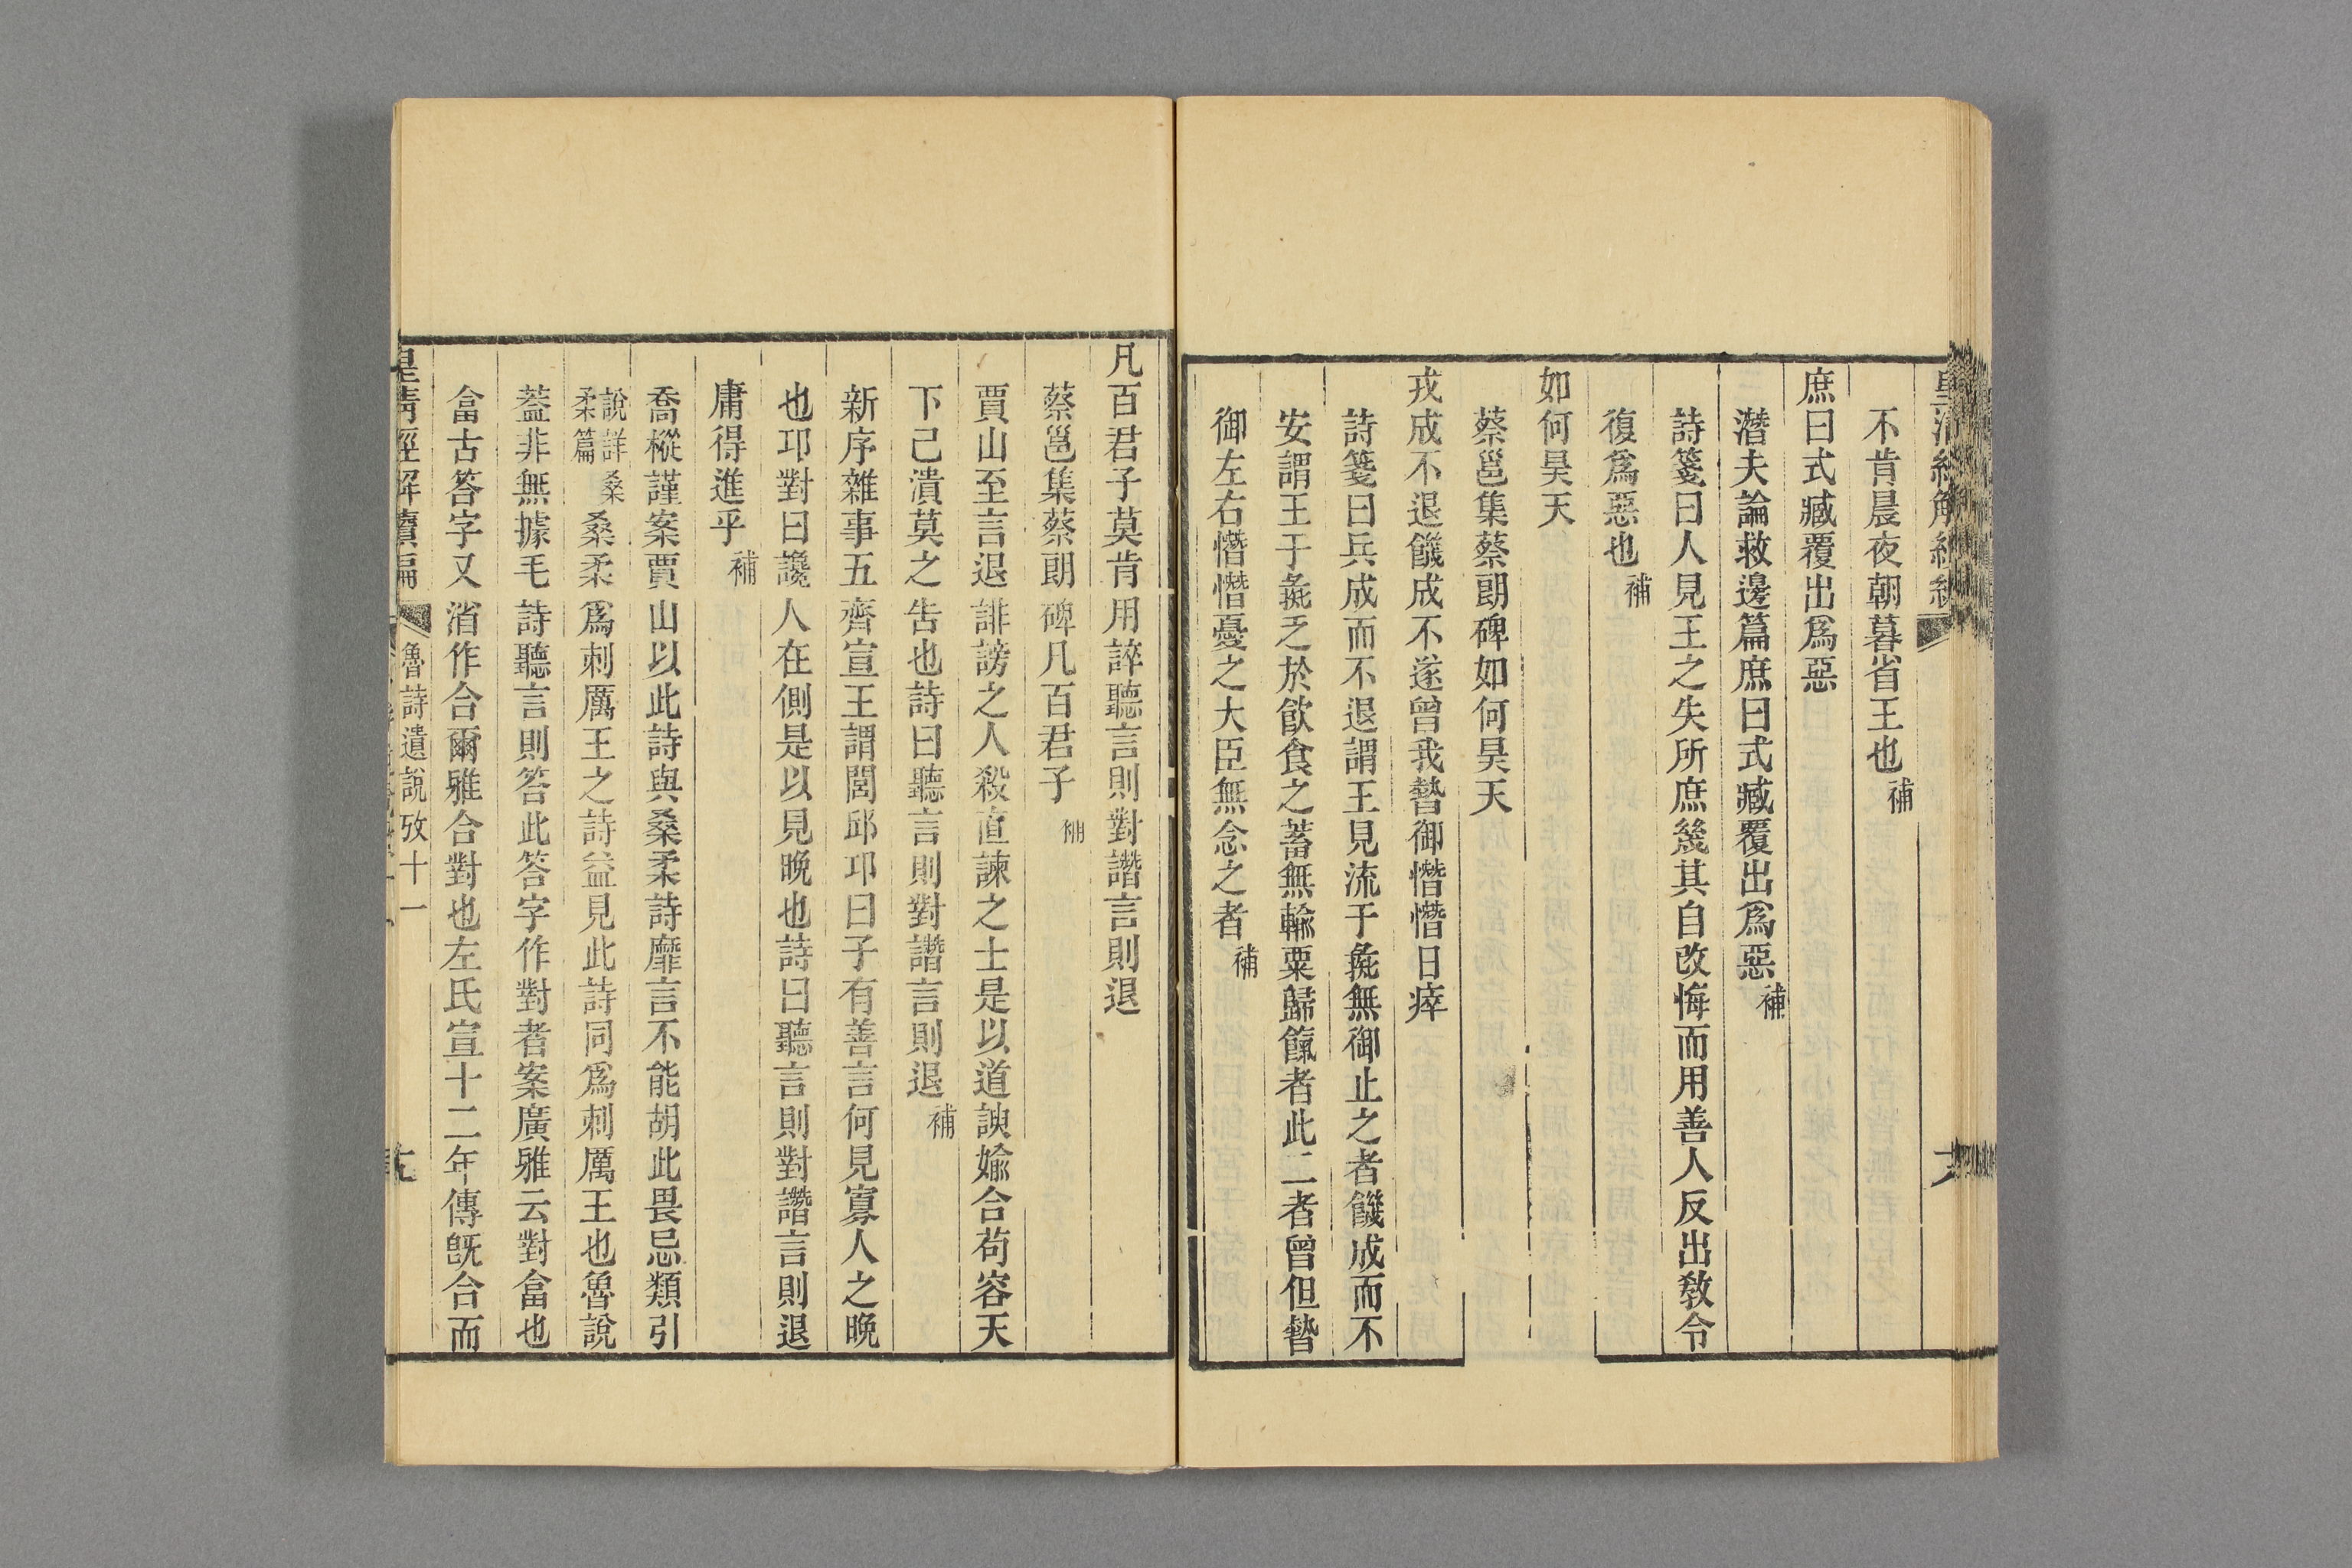 不肯晨夜朝暮省王也補
庶曰式臧覆出爲惡
潛夫論救邊篇庶曰式臧覆出爲惡補
詩箋曰人見王之失所庶幾其自改悔而用善人反出敎令
復爲惡也補
如何昊天
蔡邕集蔡朗碑如何昊天
戎成不退饑成不遂曾我暬御憯憯日瘁
詩箋曰兵成而不退謂王見流于彘無御止之者饑成而不
安謂王于彘乏於飮食之蓄無輸粟歸餼者此二者曾但暬
御左右憯憯憂之大臣無念之者補
凡百君子莫肯用誶聽言則對譖言則退
蔡邕集蔡朗碑凡百君子補
賈山至言退誹謗之人殺直諫之士是以道諛婾合苟容天
下已潰莫之告也詩曰聽言則對譖言則退補
新序雜事五齊宣王謂閭邱卭曰子有善言何見寡人之晚
也卭對曰讒人在側是以見晚也詩曰聽言則對譖言則退
庸得進乎補
喬樅謹案賈山以此詩與桑柔詩靡言不能胡此畏忌類引
說詳桑柔篇桑柔爲刺厲王之詩益見此詩同爲刺厲王也魯說
葢非無據毛詩聽言則答此答字作對者案廣雅云對畣也
畣古答字又渻作合爾雅合對也左氏宣十二年傳旣合而
皇淸經解續編 魯詩遺說攷十一